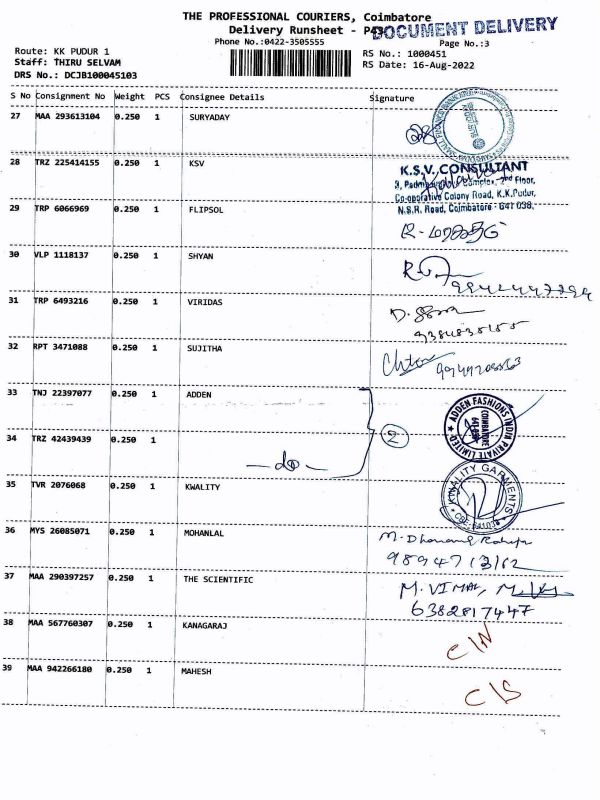 THE PROFESSIONAL COURIERS, Coimbatore
Delivery Runsheet -
DOCUMENT DELIVERY
Phone No.:0422-3505555
Page No.:3
Route: KK PUDUR 1
RS No.: 1000451
Staff: THIRU SELVAM
RS Date: 16-Aug-2022
DRS No.: DCJB100045103
S No Consignment No Weight PCS Consignee Details Signature
27 MAA 293613104 0.250 1 SURYADAY
28 TRZ 225414155 0.250 1 KSV
K.S.V. CONSULTANT
2nd Floor,
Co-operative Colony Road, K.K.Pudur,
N.S.R. Road, Coimbatore - 641 038.
29 TRP 6066969 0.250 1 FLIPSOL
30 VLP 1118137 0.250 1 SHYAN
31 TRP 6493216 0.250 1 VIRIDAS
32 RPT 3471088 0.250 1 SUJITHA
33 TNJ 22397077 0.250 1 ADDEN
ADDEN FASHIONS INDIA PRIVATE LIMITED
COIMBATORE
2
34 TRZ 42439439 0.250 1
- do -
35 TVR 2076068 0.250 1 KWALITY
KWALITY GARMENTS
36 MYS 26085071 0.250 1 MOHANLAL
37 MAA 290397257 0.250 1 THE SCIENTIFIC
M. VIMAL,
6382817447
38 MAA 567760307 0.250 1 KANAGARAJ
C/N
39 MAA 942266180 0.250 1 MAHESH
C/S